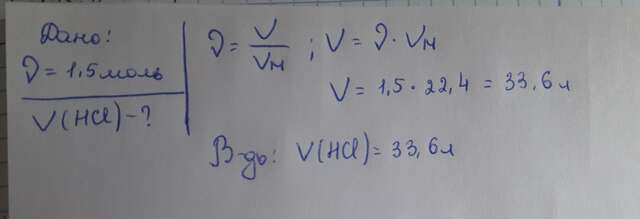 Дано:
ν = 1,5 моль
V(HCl) - ?
ν = V/Vм ; V = ν · Vм
V = 1,5 · 22,4 = 33,6 л
В-дь: V(HCl) = 33,6 л